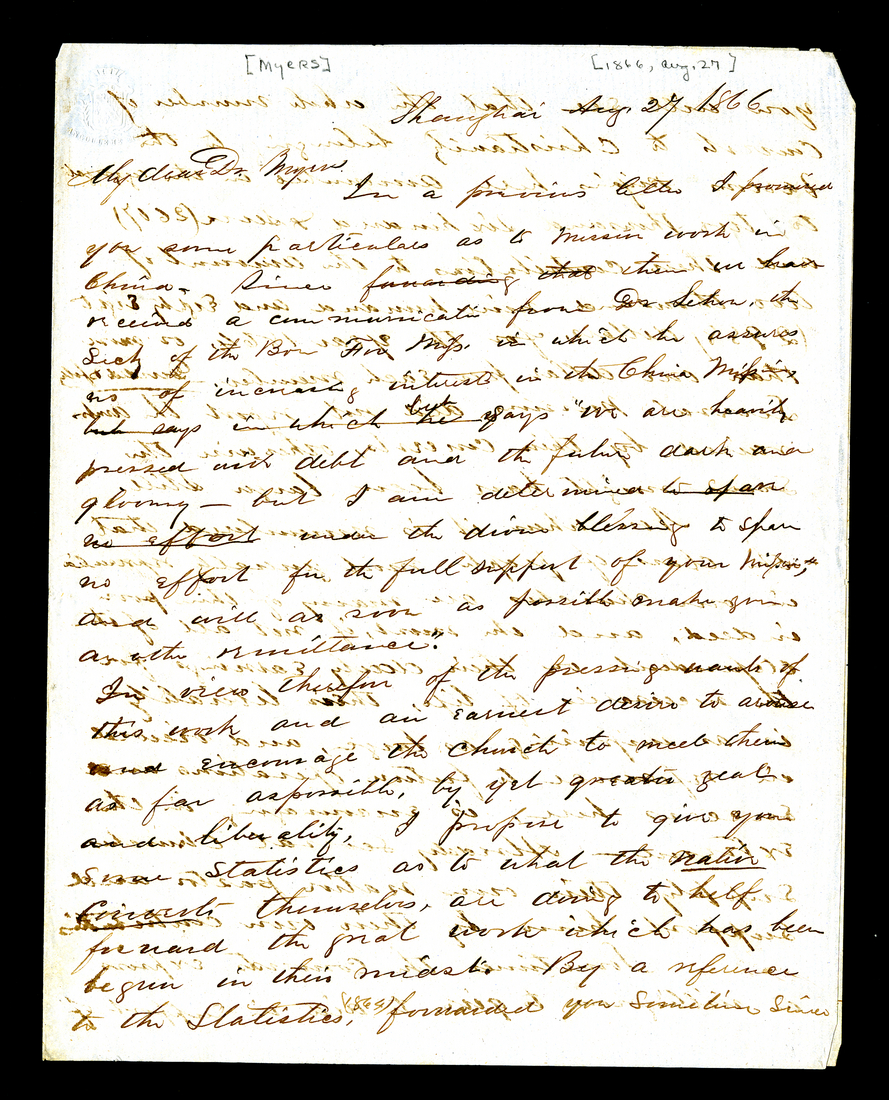 [Myers]
[1866, Aug. 27]
Shanghai Aug. 27 1866
My dear Dr. Myers.
In a previous letter I promised
you some particulars as to Mission work in
China - Since forwarding that then we have
received a communicatn from Dr Sehon, the
Secty of the Bor For Miss. in which he assures
us of increasing interest in the China Missin
but says in which he but says "we are heavily
pressed with debt and the future dark and
gloomy — but I am determined to spare
no effort under the divine blessing to spare
no effort for the full support of your Mission,"
and will as soon as possible make you
another remittance."
In view therefore of the pressing wants of
this work and an earnest desire to arouse
and encourage the church to meet them
as far as possible, by yet greater zeal
and liberality, I propose to give you
some Statistics as to what the native
Converts themselves, are doing to help
forward the great work which has been
begun in their midst. By a reference
to the Statistics, (1865) forwarded you sometime since